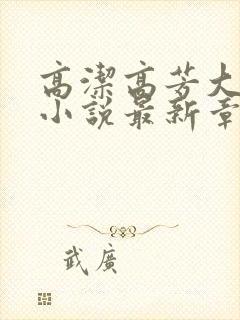 高潔高芳大
小說最新章
武廣